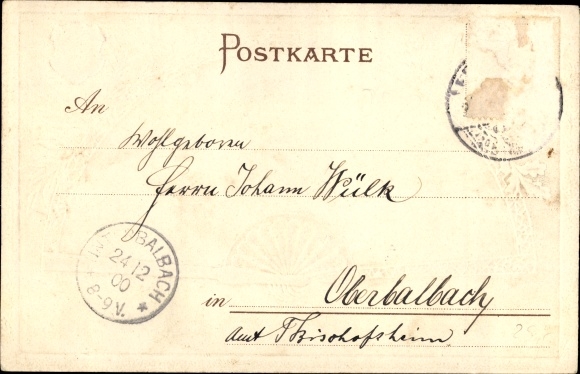 POSTKARTE
An
Wohlgeboren
Herrn Johann Wülk
in Oberbalbach
Amt Tbischofsheim
BALBACH
24 12
00
8-9 V.